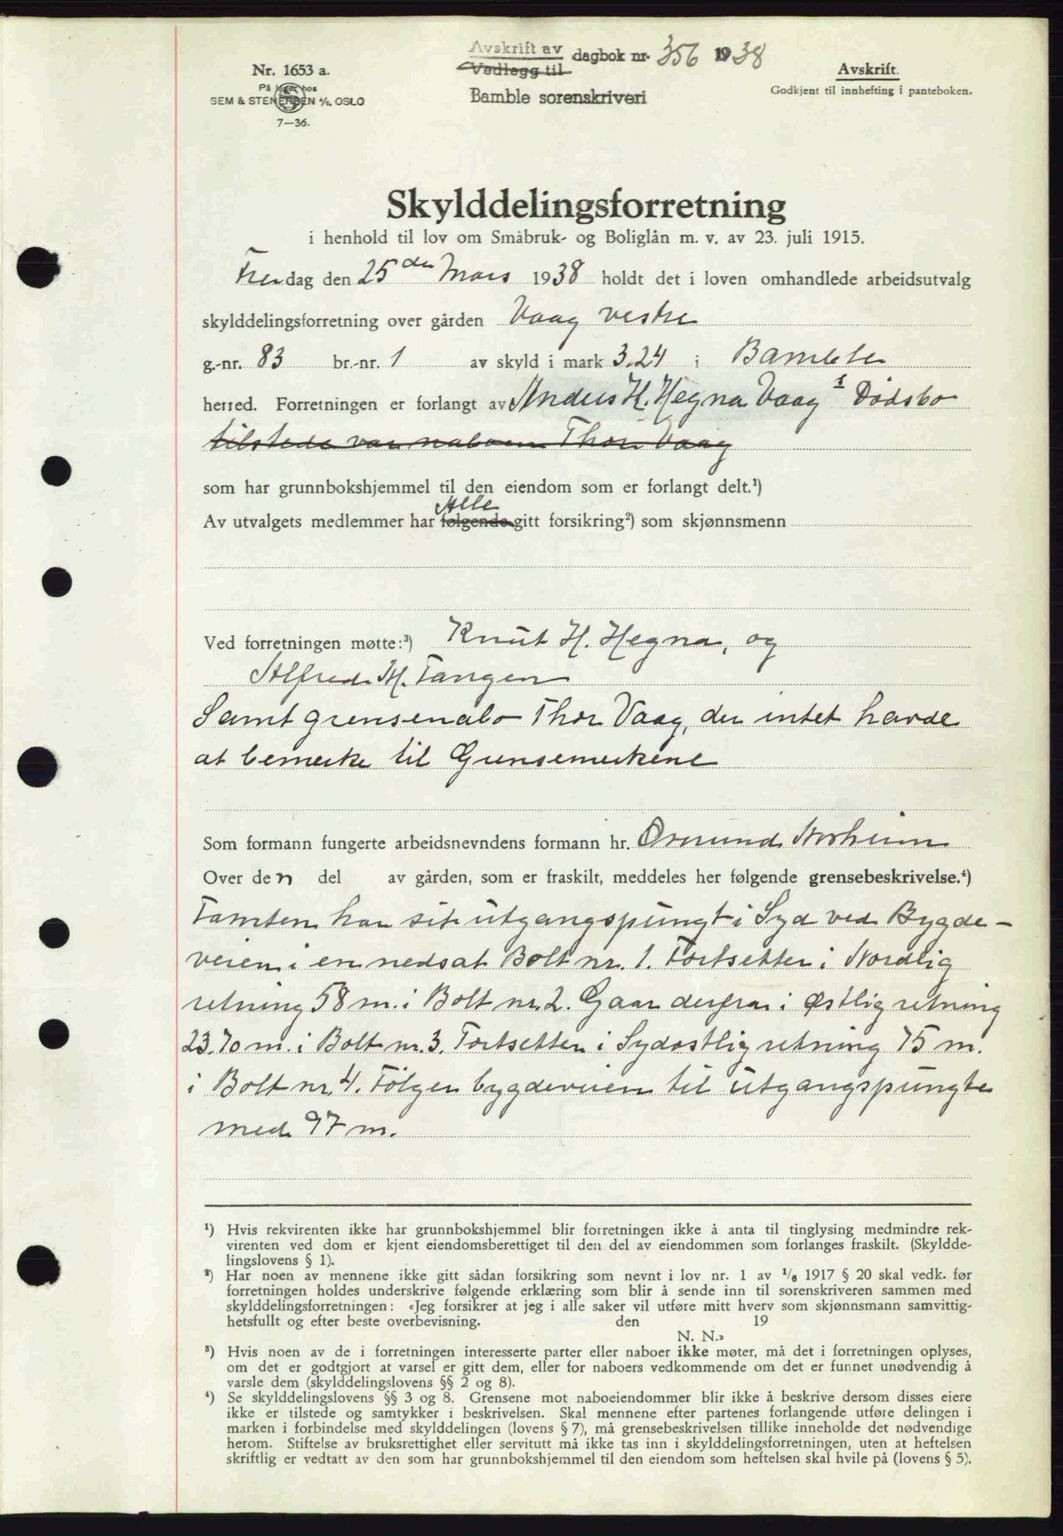 Nr. 1653 a.
På lager hos
SEM & STENERSEN A/S, OSLO
7—36.
Avskrift av
Vedlegg til
dagbok nr. 356 1938
Bamble sorenskriveri
Avskrift.
Godkjent til innhefting i panteboken.
Skylddelingsforretning
i henhold til lov om Småbruk- og Boliglån m. v. av 23. juli 1915.
Fredag den 25de Mars 1938 holdt det i loven omhandlede arbeidsutvalg
skylddelingsforretning over gården Vaag vestre
g.-nr. 83 br.-nr. 1 av skyld i mark 3.24 i Bamble
herred. Forretningen er forlangt av Anders H. Hegna Vaag's Dødsbo
tilstede var naboen Thor Vaag
som har grunnbokshjemmel til den eiendom som er forlangt delt.¹)
Alle
Av utvalgets medlemmer har følgende gitt forsikring²) som skjønnsmenn
Ved forretningen møtte:³) Knut H. Hegna, og
Alfred M. Tangen
Samt grensenabo Thor Vaag, der intet havde
at bemerke til Grensemerkene
Som formann fungerte arbeidsnevndens formann hr. Ormund Norheim
Over den del av gården, som er fraskilt, meddeles her følgende grensebeskrivelse.⁴)
Tomten har sit utgangspungt i Syd ved Bygde-
veien i en nedsat Bolt nr. 1. Fortsetter i Nordlig
retning 58 m. i Bolt nr. 2. Gaar derfra i østlig retning
23.70 m. i Bolt nr. 3. Fortsetter i Sydostlig retning 75 m.
i Bolt nr. 4. Følger bygdeveien til utgangspungte
med 97 m.
¹) Hvis rekvirenten ikke har grunnbokshjemmel blir forretningen ikke å anta til tinglysing medmindre rek-
virenten ved dom er kjent eiendomsberettiget til den del av eiendommen som forlanges fraskilt. (Skyldde-
lingslovens § 1).
²) Har noen av mennene ikke gitt sådan forsikring som nevnt i lov nr. 1 av ¹/₆ 1917 § 20 skal vedk. før
forretningen holdes underskrive følgende erklæring som blir å sende inn til sorenskriveren sammen med
skylddelingsforretningen: «Jeg forsikrer at jeg i alle saker vil utføre mitt hverv som skjønnsmann samvittig-
hetsfullt og efter beste overbevisning. den 19
N. N.»
³) Hvis noen av de i forretningen interesserte parter eller naboer ikke møter, må det i forretningen oplyses,
om det er godtgjort at varsel er gitt dem, eller for naboers vedkommende om det er funnet unødvendig å
varsle dem (skylddelingslovens §§ 2 og 8).
⁴) Se skylddelingslovens §§ 3 og 8. Grensene mot naboeiendommer blir ikke å beskrive dersom disses eiere
ikke er tilstede og samtykker i beskrivelsen. Skal mennene efter partenes forlangende utføre delingen i
marken i forbindelse med skylddelingen (lovens § 7), må grensebeskrivelsen tillike inneholde det nødvendige
herom. Stiftelse av bruksrettighet eller servitutt må ikke tas inn i skylddelingsforretningen, uten at heftelsen
skriftlig er vedtatt av den som har grunnbokshjemmel til den eiendom som heftelsen skal hvile på (lovens § 5).